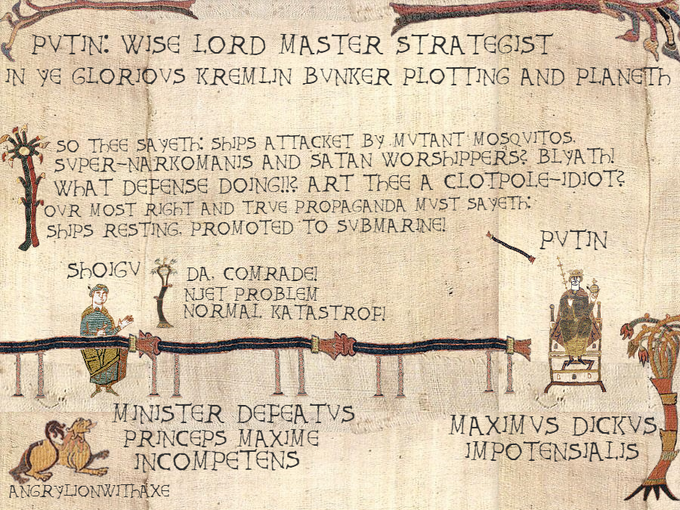 PVTIN: WISE LORD MASTER STRATEGIST
IN YE GLORIOVS KREMLIN BVNKER PLOTTING AND PLANETH
SO THEE SAYETH: SHIPS ATTACKET BY MVTANT MOSQVITOS,
SVPER-NARKOMANIS AND SATAN WORSHIPPERS? BLYATH!
WHAT DEFENSE DOING!!? ART THEE A CLOTPOLE-IDIOT?
OVR MOST RIGHT AND TRVE PROPAGANDA MVST SAYETH:
SHIPS RESTING, PROMOTED TO SVBMARINE!
PVTIN
SHOIGV
DA, COMRADE!
NJET PROBLEM
NORMAL KATASTROF!
MINISTER DEFEATVS
PRINCEPS MAXIME
INCOMPETENS
MAXIMVS DICKVS
IMPOTENSIALIS
ANGRYLIONWITHAXE